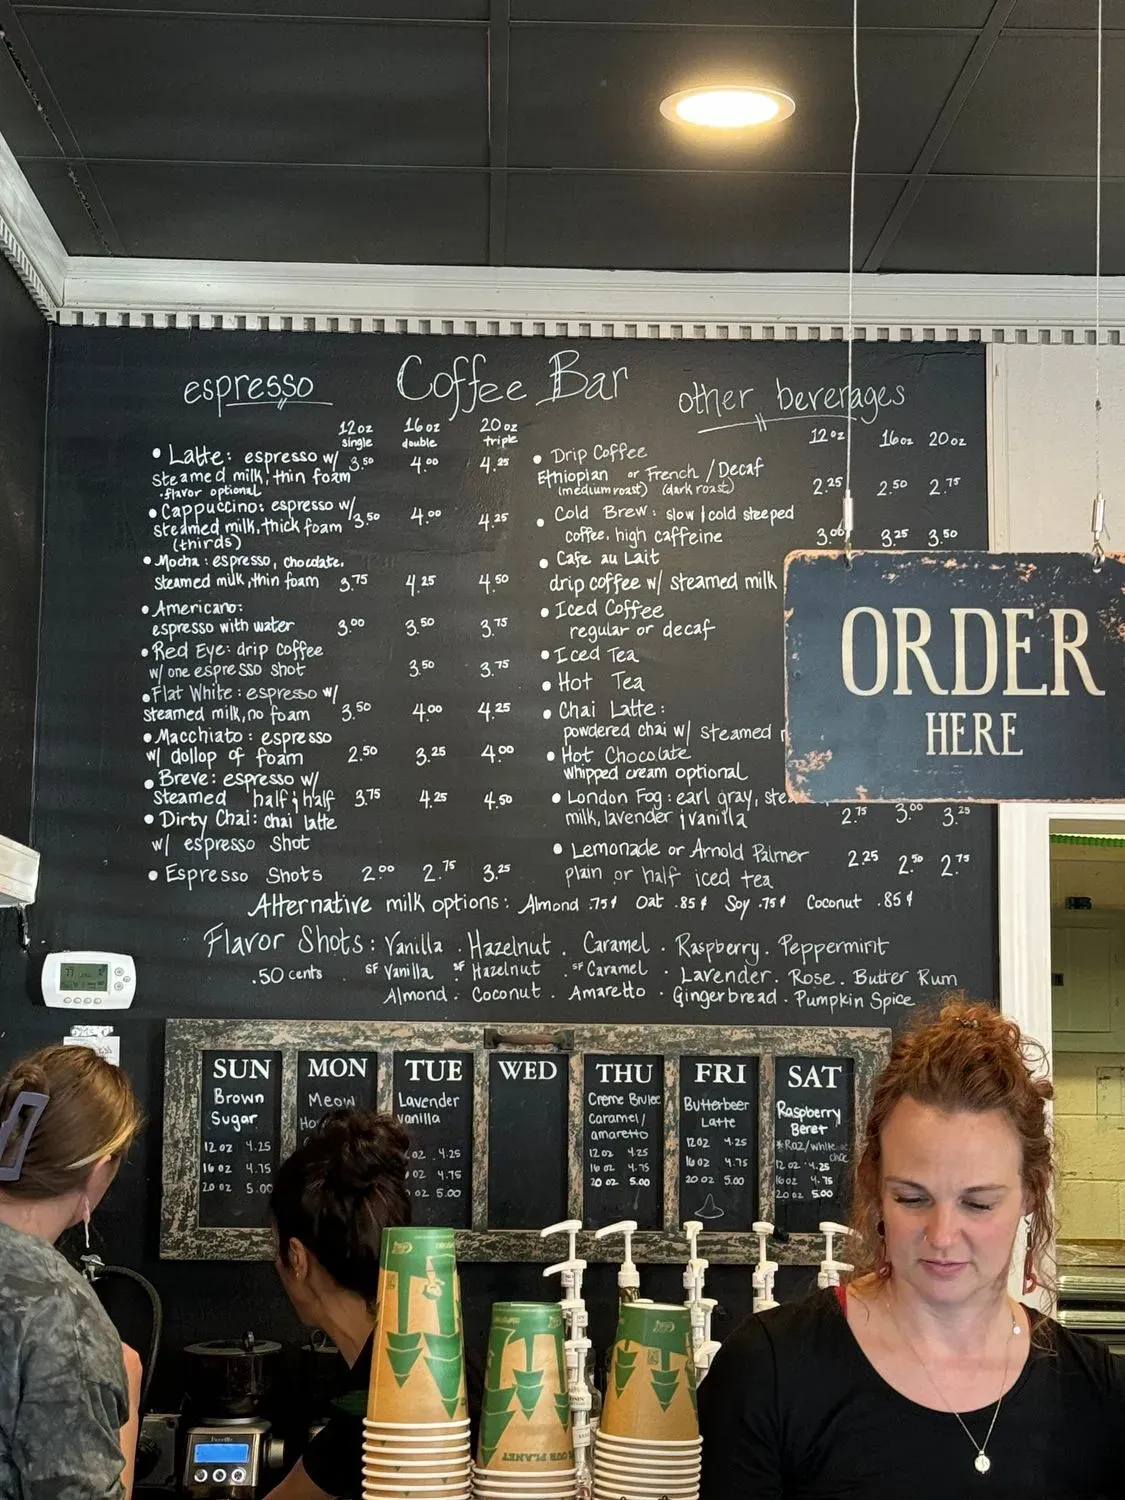 Coffee Bar
espresso
12oz 16oz 20oz
single double triple
• Latte: espresso w/ 3.50 4.00 4.25
steamed milk, thin foam
• flavor optional
• Cappuccino: espresso w/
steamed milk, thick foam 3.50 4.00 4.25
(thirds)
• Mocha: espresso, chocolate,
steamed milk, thin foam 3.75 4.25 4.50
• Americano:
espresso with water 3.00 3.50 3.75
• Red Eye: drip coffee
w/ one espresso shot 3.50 3.75
• Flat White: espresso w/
steamed milk, no foam 3.50 4.00 4.25
• Macchiato: espresso
w/ dollop of foam 2.50 3.25 4.00
• Breve: espresso w/
steamed half & half 3.75 4.25 4.50
• Dirty Chai: chai latte
w/ espresso shot
• Espresso Shots 2.00 2.75 3.25
other beverages
12oz 16oz 20oz
• Drip Coffee
Ethiopian or French / Decaf
(medium roast) (dark roast) 2.25 2.50 2.75
• Cold Brew: slow | cold steeped
coffee, high caffeine 3.00 3.25 3.50
• Cafe au Lait
drip coffee w/ steamed milk
• Iced Coffee
regular or decaf
• Iced Tea
• Hot Tea
• Chai Latte:
powdered chai w/ steamed
• Hot Chocolate
whipped cream optional
• London Fog: earl gray,
milk, lavender & vanilla 2.75 3.00 3.25
• Lemonade or Arnold Palmer 2.25 2.50 2.75
plain or half iced tea
Alternative milk options: Almond .75¢ Oat .85¢ Soy .75¢ Coconut .85¢
Flavor Shots: Vanilla . Hazelnut . Caramel . Raspberry . Peppermint
.50 cents . SF Vanilla SF Hazelnut . SF Caramel . Lavender . Rose . Butter Rum
Almond . Coconut . Amaretto . Gingerbread . Pumpkin Spice
ORDER
HERE
SUN
Brown
Sugar
12 oz 4.25
16 oz 4.75
20 oz 5.00
MON
Meow
TUE
Lavender
vanilla
oz 4.25
oz 4.75
oz 5.00
WED
THU
Creme Brulee
Caramel/
amaretto
12 oz 4.25
16 oz 4.75
20 oz 5.00
FRI
Butterbeer
Latte
12oz 4.25
16 oz 4.75
20 oz 5.00
SAT
Raspberry
Beret
*Raz/white
choc
12 oz 4.25
16oz 4.75
20oz 5.00